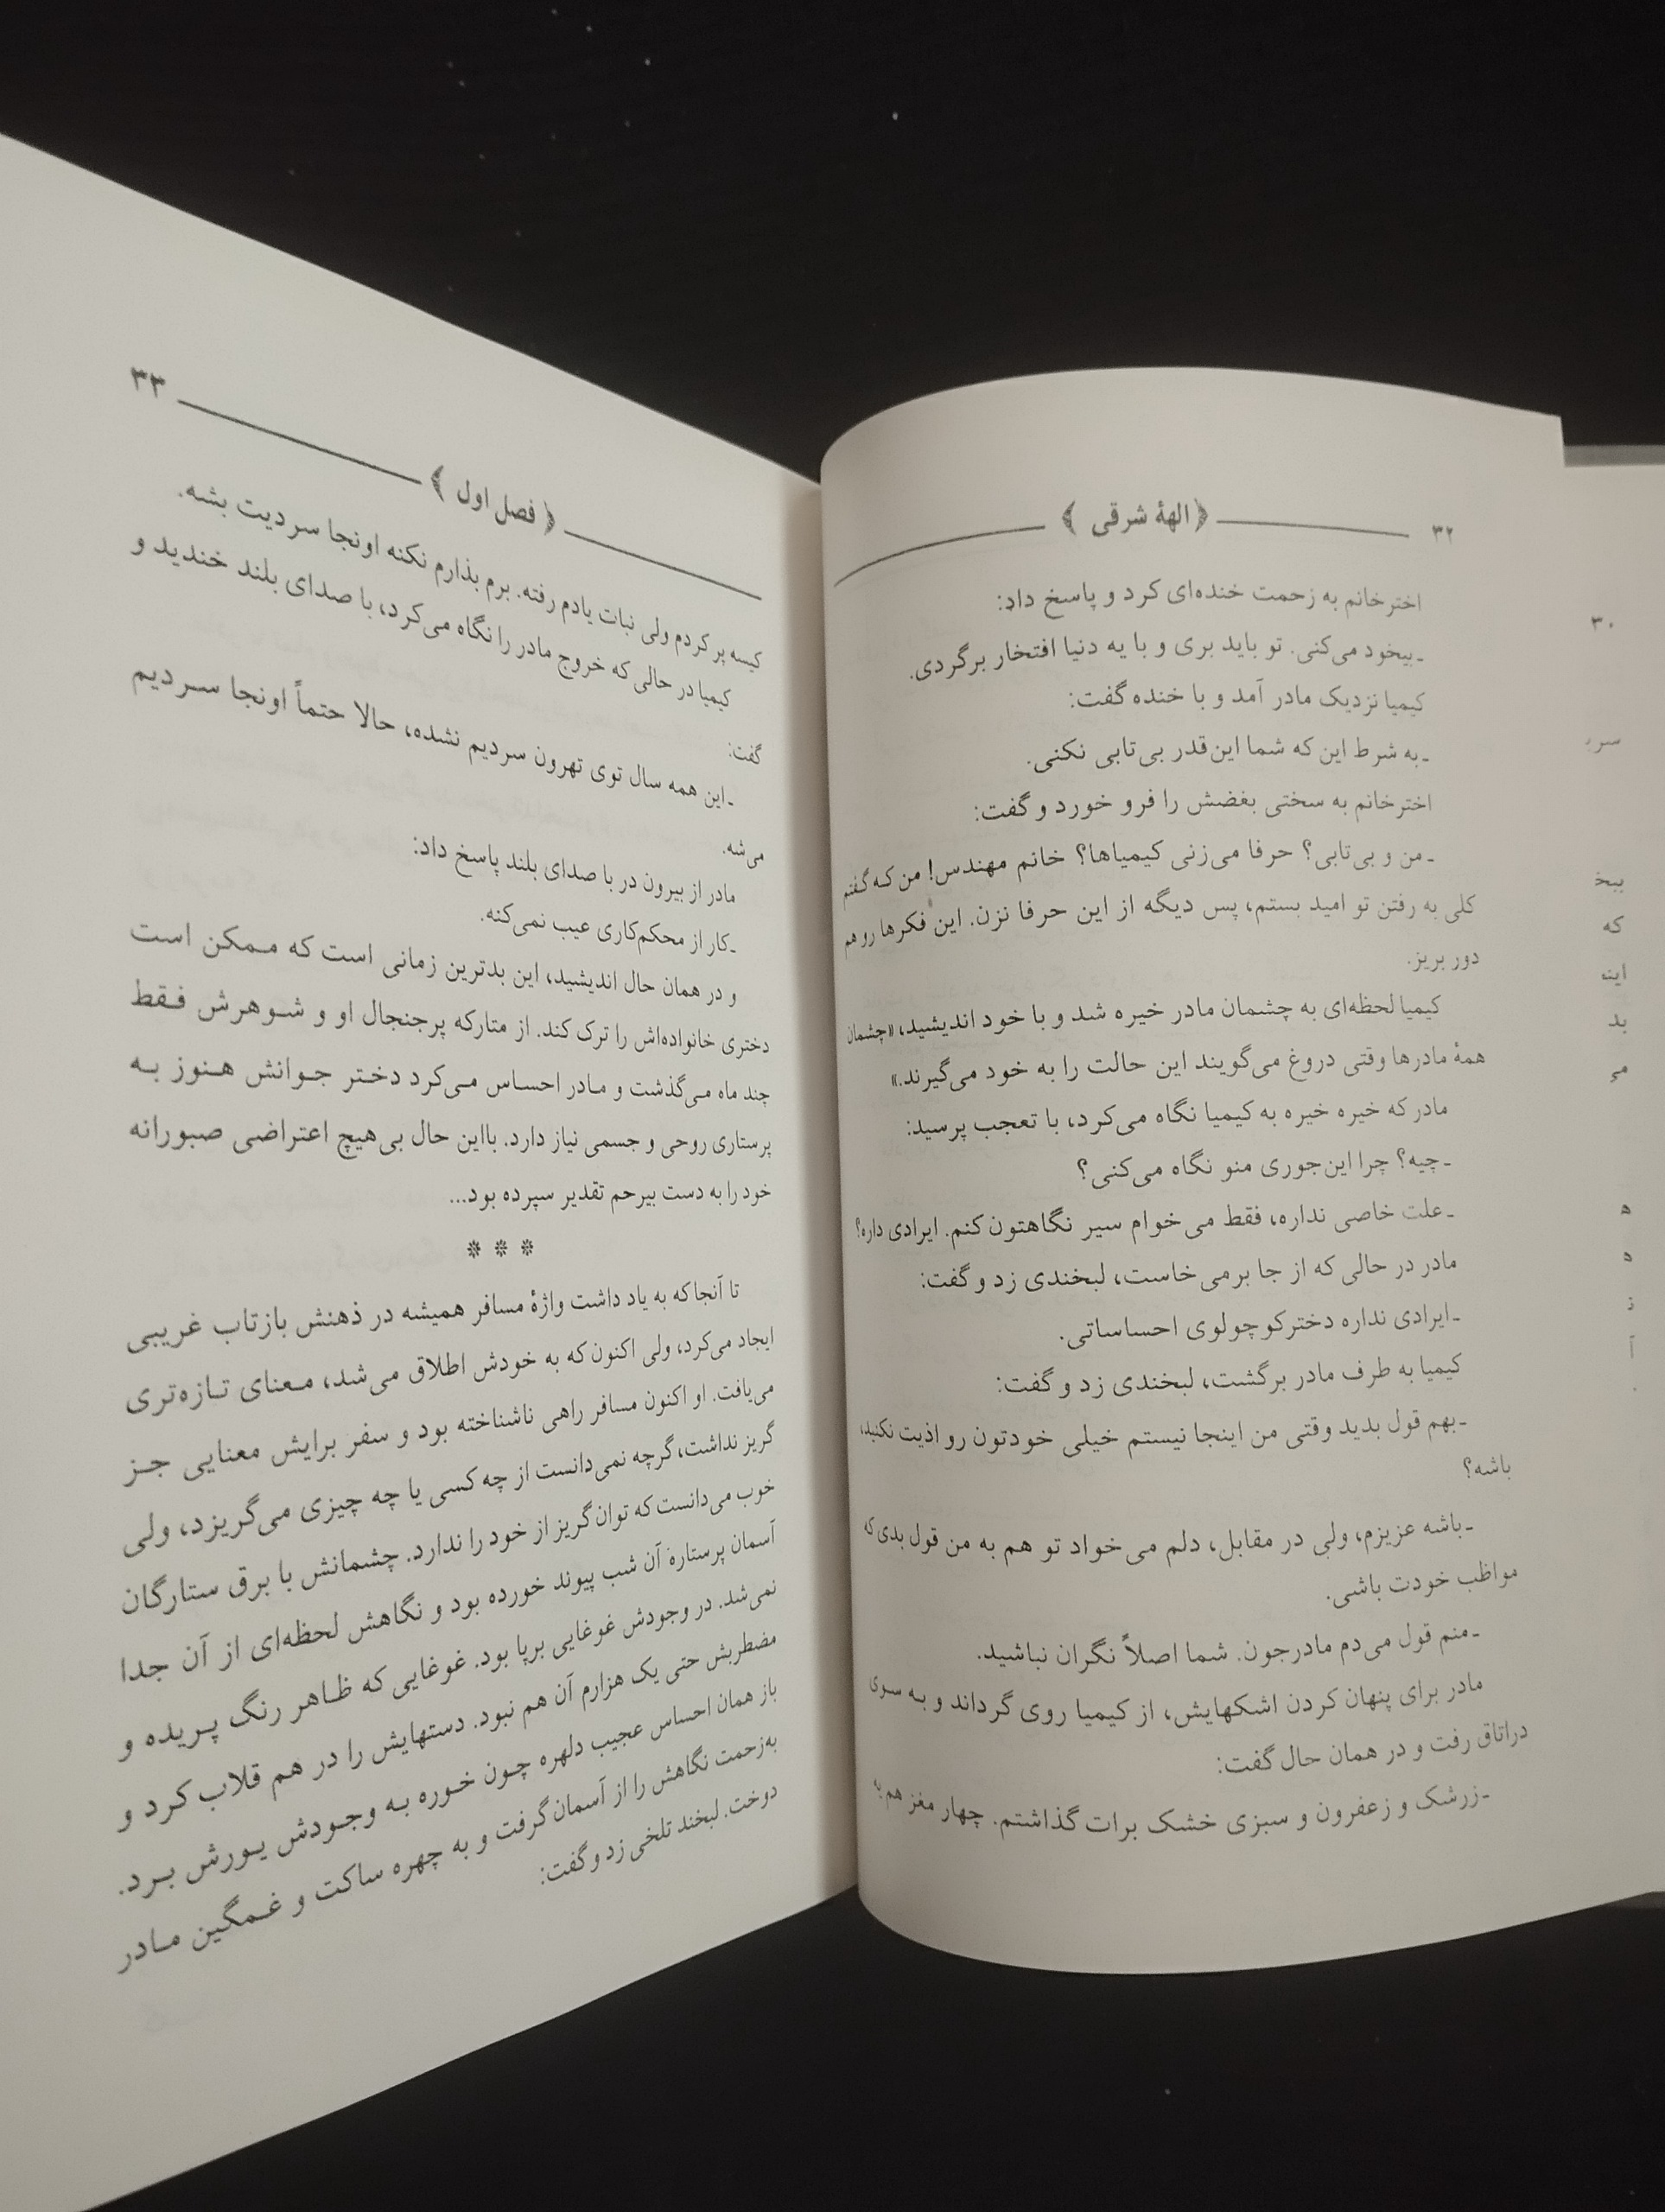 ۳۲
﴿الههٔ شرقی﴾
اخترخانم به زحمت خنده‌ای کرد و پاسخ داد:
ـ بیخود می‌کنی. تو باید بری و با یه دنیا افتخار برگردی.
کیمیا نزدیک مادر آمد و با خنده گفت:
ـ به شرط این که شما این‌قدر بی‌تابی نکنی.
اخترخانم به سختی بغضش را فرو خورد و گفت:
ـ من و بی‌تابی؟ حرفا می‌زنی کیمیاها؟ خانم مهندس! من که گفتم
کلی به رفتن تو امید بستم، پس دیگه از این حرفا نزن. این فکرها رو هم
دور بریز.
کیمیا لحظه‌ای به چشمان مادر خیره شد و با خود اندیشید، «چشمان
همهٔ مادرها وقتی دروغ می‌گویند این حالت را به خود می‌گیرند.»
مادر که خیره خیره به کیمیا نگاه می‌کرد، با تعجب پرسید:
ـ چیه؟ چرا این‌جوری منو نگاه می‌کنی؟
ـ علت خاصی نداره، فقط می‌خوام سیر نگاهتون کنم. ایرادی داره؟
مادر در حالی که از جا برمی‌خاست، لبخندی زد و گفت:
ـ ایرادی نداره دختر کوچولوی احساساتی.
کیمیا به طرف مادر برگشت، لبخندی زد و گفت:
ـ بهم قول بدید وقتی من اینجا نیستم خیلی خودتون رو اذیت نکنید،
باشه؟
ـ باشه عزیزم، ولی در مقابل، دلم می‌خواد تو هم به من قول بدی که
مواظب خودت باشی.
ـ منم قول می‌دم مادرجون. شما اصلاً نگران نباشید.
مادر برای پنهان کردن اشکهایش، از کیمیا روی گرداند و به سوی
در اتاق رفت و در همان حال گفت:
ـ زرشک و زعفرون و سبزی خشک برات گذاشتم. چهار مغز هم یه
۳۳
﴿فصل اول﴾
کیسه پر کردم ولی نبات یادم رفته. برم بذارم نکنه اونجا سردیت بشه.
کیمیا در حالی که خروج مادر را نگاه می‌کرد، با صدای بلند خندید و
گفت:
ـ این همه سال توی تهرون سردیم نشده، حالا حتماً اونجا سردیم
می‌شه.
مادر از بیرون در با صدای بلند پاسخ داد:
ـ کار از محکم‌کاری عیب نمی‌کنه.
و در همان حال اندیشید، این بدترین زمانی است که ممکن است
دختری خانواده‌اش را ترک کند. از متارکه پرجنجال او و شوهرش فقط
چند ماه می‌گذشت و مادر احساس می‌کرد دختر جوانش هنوز به
پرستاری روحی و جسمی نیاز دارد. بااین حال بی‌هیچ اعتراضی صبورانه
خود را به دست بیرحم تقدیر سپرده بود...
* * *
تا آنجا که به یاد داشت واژهٔ مسافر همیشه در ذهنش بازتاب غریبی
ایجاد می‌کرد، ولی اکنون که به خودش اطلاق می‌شد، معنای تازه‌تری
می‌یافت. او اکنون مسافر راهی ناشناخته بود و سفر برایش معنایی جز
گریز نداشت، گرچه نمی‌دانست از چه کسی یا چه چیزی می‌گریزد، ولی
خوب می‌دانست که توان گریز از خود را ندارد. چشمانش با برق ستارگان
آسمان پرستارهٔ آن شب پیوند خورده بود و نگاهش لحظه‌ای از آن جدا
نمی‌شد. در وجودش غوغایی برپا بود. غوغایی که ظاهر رنگ پریده و
مضطربش حتی یک هزارم آن هم نبود. دستهایش را در هم قلاب کرد و
باز همان احساس عجیب دلهره چون خوره به وجودش یورش برد.
به‌زحمت نگاهش را از آسمان گرفت و به چهره ساکت و غمگین مادر
دوخت. لبخند تلخی زد و گفت: